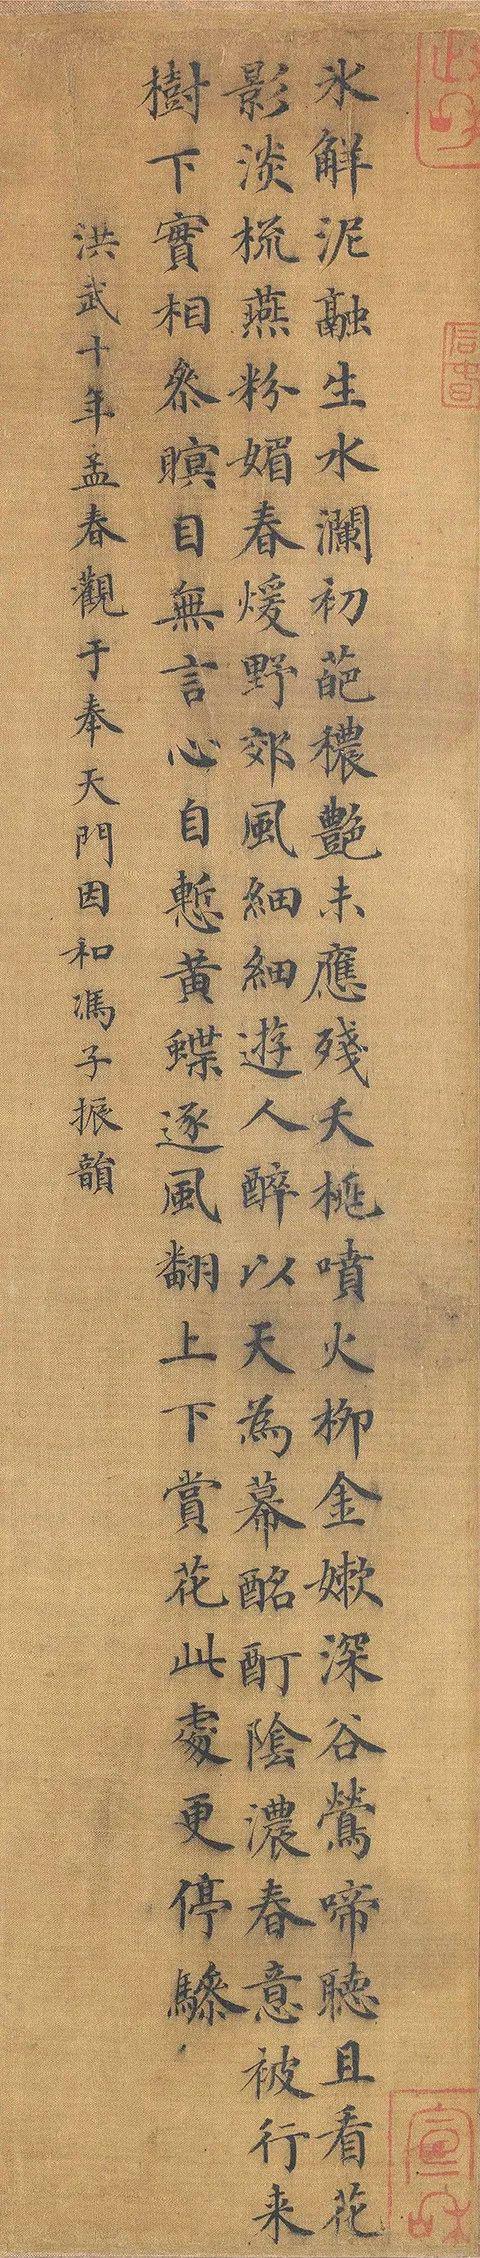 政和
氷觧泥融生水瀾初葩穠艷未應殘夭桃噴火柳金嫰深谷鶯啼聽且看花
影淡梳燕粉媚春煖野郊風細細遊人醉以天為幕酩酊陰濃春意被行来
樹下實相叅瞑目無言心自慙黃蝶逐風翻上下賞花此處更停驂
洪武十年孟春觀于奉天門因和馮子振韻
宣和